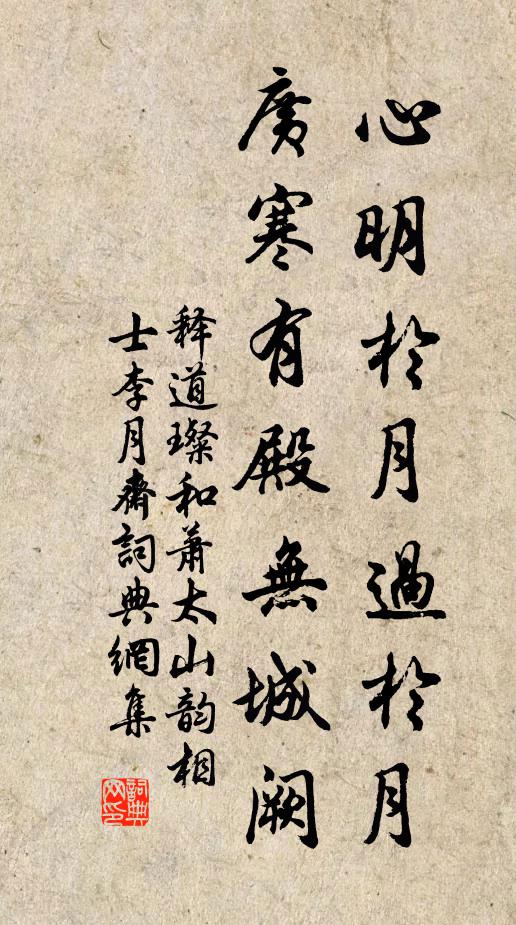 心明於月過於月
廣寒有殿無城闕
释道璨和萧太山韵相
士李月齋詞典網集
詞典
网印